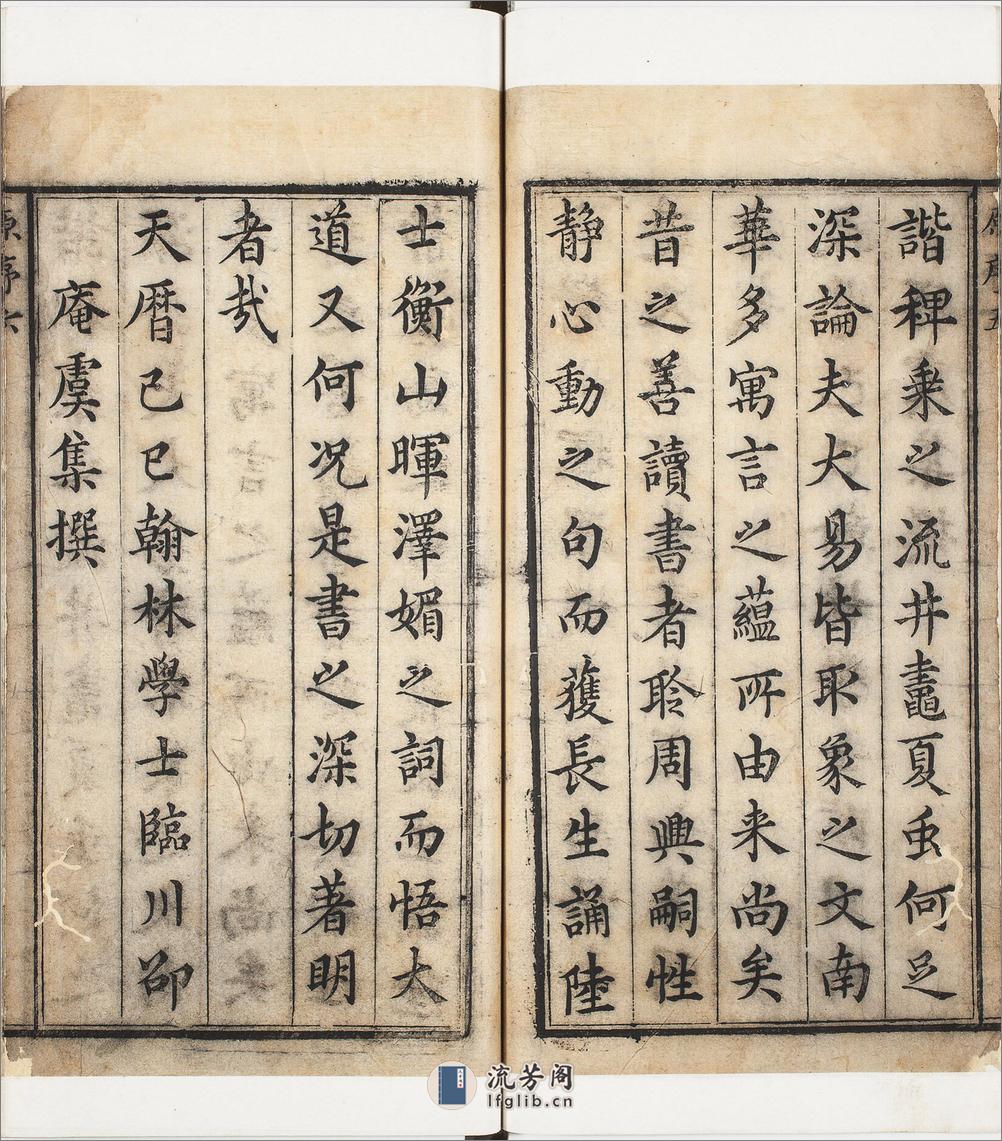 諧稗乗之流井鼃夏虫何足
深論夫大易皆取象之文南
華多寓言之蘊所由来尚矣
昔之善讀書者聆周興嗣性
静心動之句而獲長生誦陸
士衡山暉澤媚之詞而悟大
道又何况是書之深切著明
者哉
天曆己巳翰林學士臨川邵
庵虞集撰
原序六
流芳阁
lfglib.cn